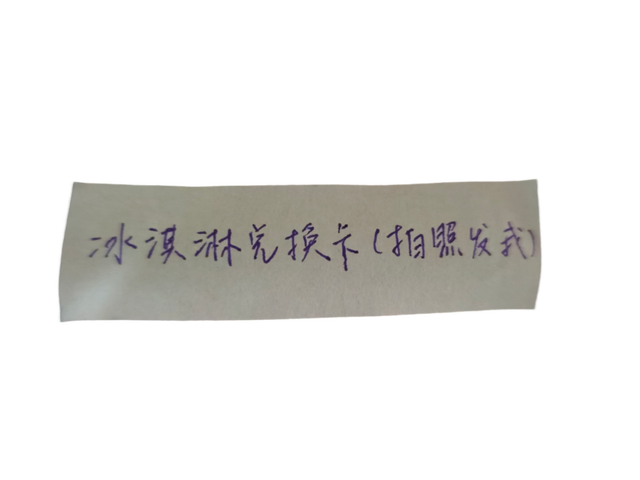 冰淇淋兑换卡(拍照发我)